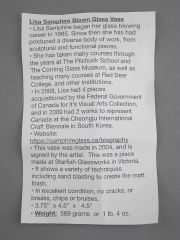 Lisa Samphire Blown Glass Vase
• Lisa Samphire began her glass blowing
career in 1985. Since then she has had
produced a diverse body of work, from
sculptural and functional pieces.
• She has taken many courses through
the years at The Pilchuck School and
The Corning Glass Museum, as well as
teaching many courses at Red Deer
College, and other institutions.
• In 2008, Lisa had 4 pieces
acquisitioned by the Federal Government
of Canada for It's Visual Arts Collection,
and in 2009 had 2 works to represent
Canada at the Cheongju International
Craft Biennale in South Korea.
• Website:
https://samphireglass.ca/biography
• This vase was made in 2004, and is
signed by the artist. This was a piece
made at Starfish Glassworks in Victoria.
• It shows a variety of techniques
including sand blasting to create the matt
finish.
• In excellent condition, no cracks, or
breaks, chips or bruises.
• 3.75" x 4.5" x 4.5"
• Weight: 569 grams or 1 lb. 4 oz.